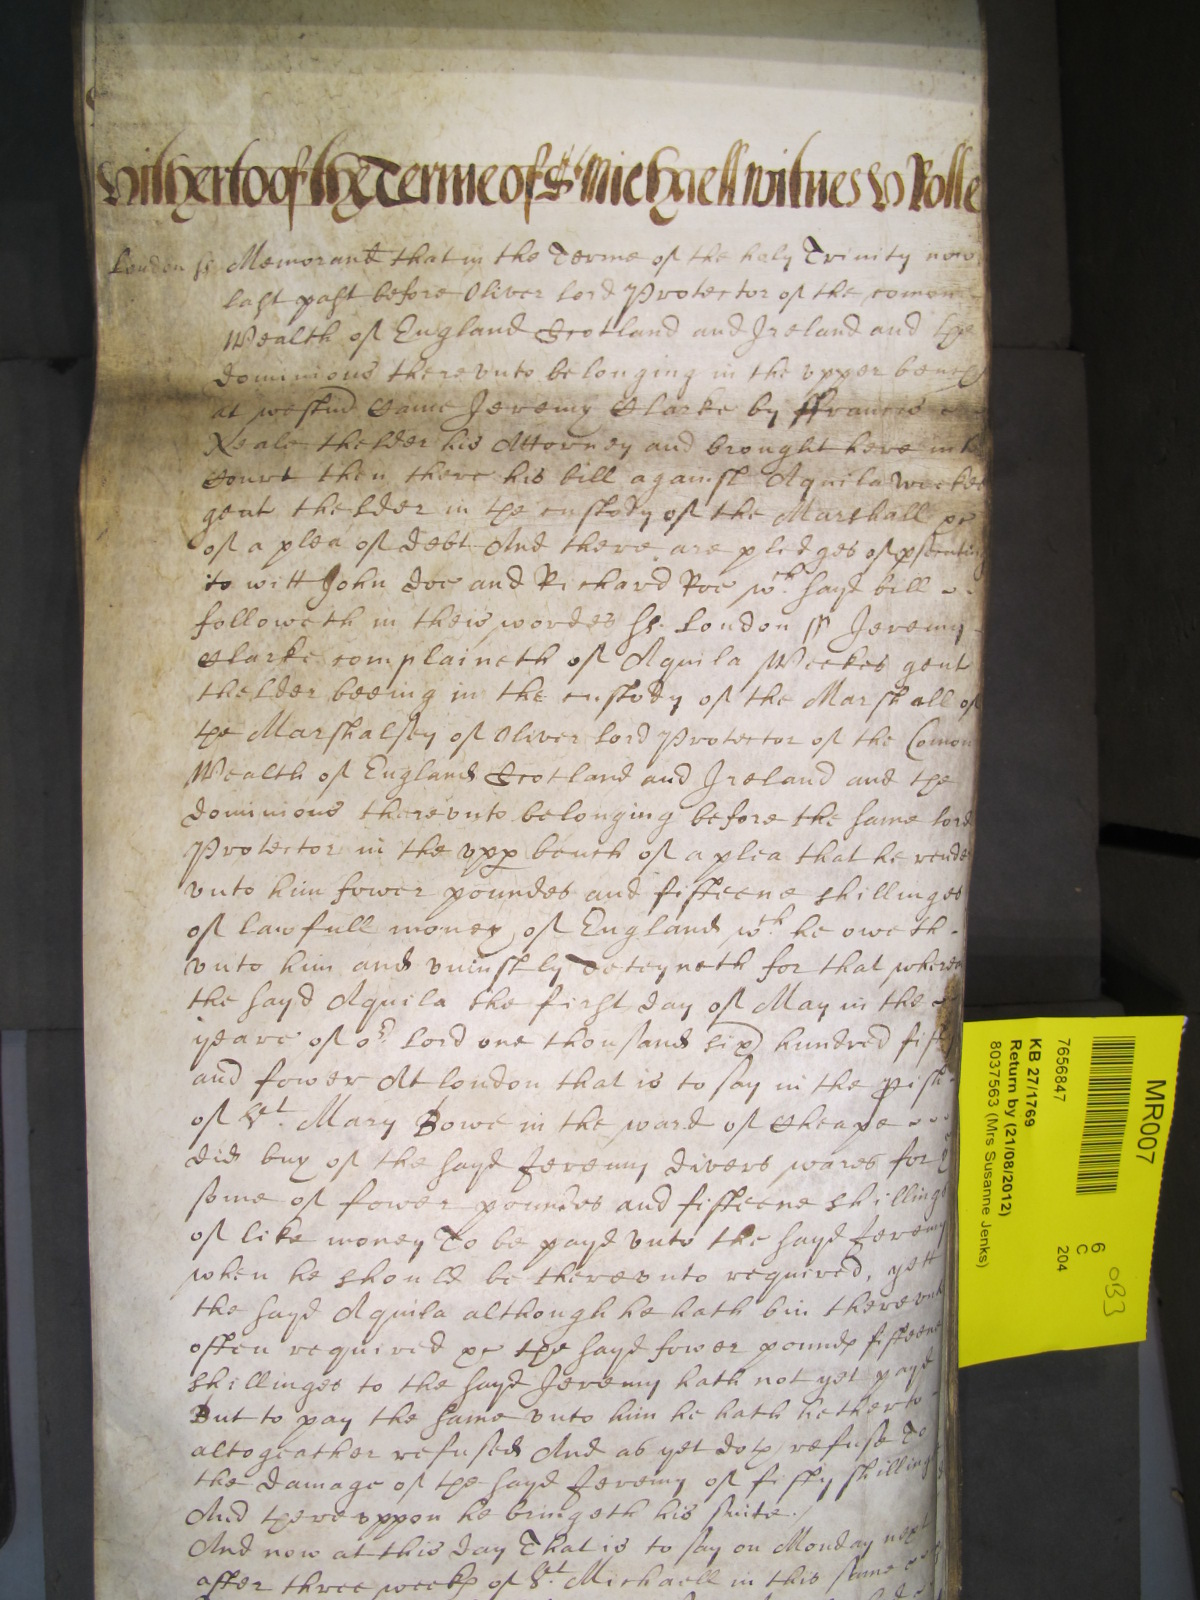 Hitherto of the Terme of St Michaell witnes H Rolle
London ss Memorand that in the Terme of the holy Trinity now
last past before Oliver Lord Protector of the comon
Wealth of England Scotland and Ireland and the
dominions therevnto belonging in the vpper bench
at westmr Came Jeremy Clarke by ffrancis
Neale thelder his Attorney and brought here into
Court then there his bill against Aquila Weekes
gent thelder in the custody of the Marshall &c
of a plea of debt And there are pledges of psecuting
to witt John Doe and Richard Roe wch sayd bill
followeth in theis wordes ss. London ss Jeremy
Clarke complaineth of Aquila Weekes gent
thelder beeing in the custody of the Marshall of
the Marshalsey of Oliver Lord Protector of the Comon
Wealth of England Scotland and Ireland and the
dominions therevnto belonging before the same Lord
Protector in the vpp bench of a plea that he render
vnto him fower poundes and fifteene shillinges
of lawfull money of England wch he oweth
vnto him and vniustly deteyneth for that whereas
the sayd Aquila the first day of May in the
yeare of or Lord one thousand six hundred fifty
and fower At London that is to say in the pish
of St. Mary Bowe in the ward of Cheape
did buy of the sayd Jeremy divers wares for
some of fower poundes and fifteene shillings
of like money To be payd vnto the sayd Jeremy
when he should be therevnto required, yett
the sayd Aquila although he hath bin therevnto
often required &c the sayd fower pounds fifteene
shillinges to the sayd Jeremy hath not yet payd
But to pay the same vnto him he hath hetherto
altogeather refused And as yet doth refuse To
the damage of the sayd Jeremy of fifty shillings
And therevppon he bringeth his suite.
And now at this day That is to say on Monday next
after three weekes of St. Michaell in this same
MR007
7656847
6
C
204
OB3
KB 27/1769
Return by (21/08/2012)
8037563 (Mrs Susanne Jenks)